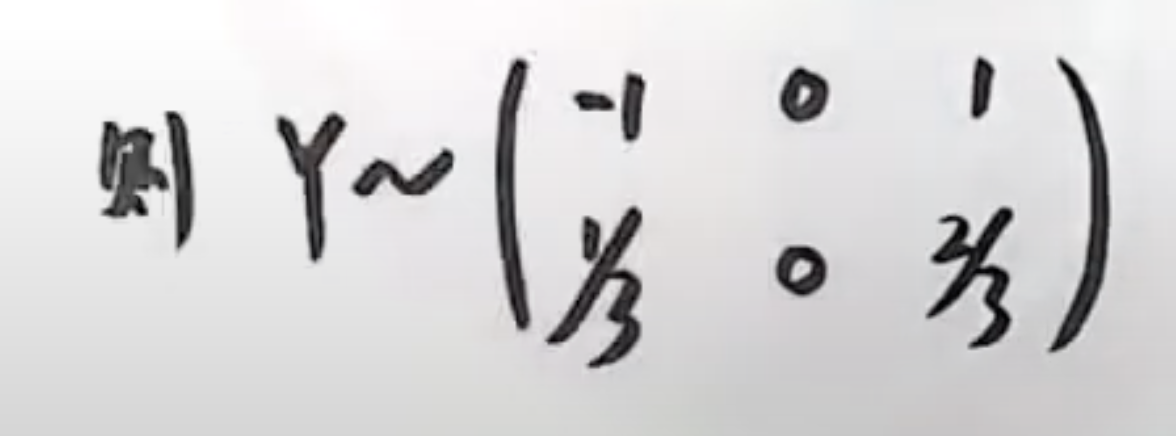 则 Y ~ ( -1 0 1
1/3 0 2/3 )